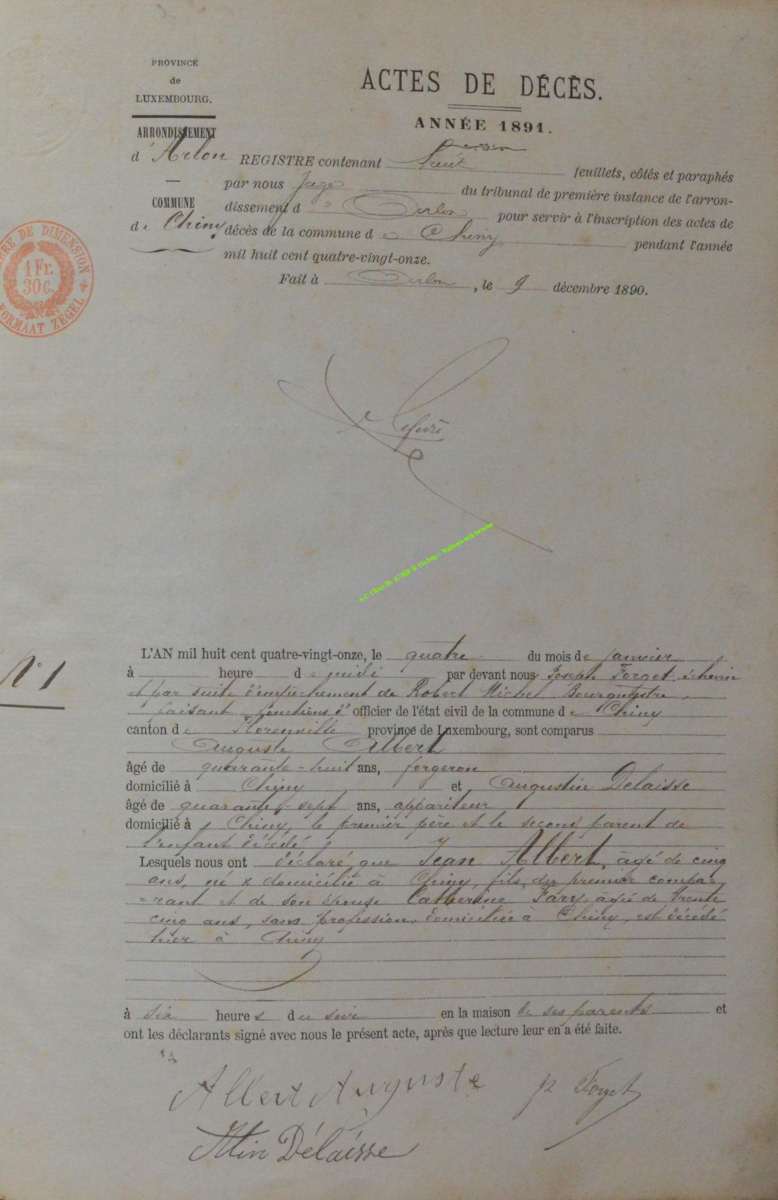 PROVINCE
de
LUXEMBOURG.
ARRONDISSEMENT
d'Arlon
COMMUNE
de Chiny
TIMBRE DE DIMENSION
1 Fr.
30 C.
FORMAAT ZEGEL
ACTES DE DÉCÈS.
ANNÉE 1891.
REGISTRE contenant huit feuillets, côtés et paraphés
par nous Juge du tribunal de première instance de l'arron-
dissement d'Arlon pour servir à l'inscription des actes de
décès de la commune de Chiny pendant l'année
mil huit cent quatre-vingt-onze.
Fait à Arlon, le 9 décembre 1890.
N° 1
L'AN mil huit cent quatre-vingt-onze, le quatre du mois de janvier
à heure de midi par devant nous Joseph Forget échevin
et par suite d'empêchement de Robert Michel Bourgmestre,
faisant fonctions d'officier de l'état civil de la commune de Chiny
canton de Florenville province de Luxembourg, sont comparus
Auguste Albert
âgé de quarante-huit ans, forgeron
domicilié à Chiny et Augustin Delaisse
âgé de quarante-sept ans, appariteur
domicilié à Chiny, le premier père et le second parent de
l'enfant décédé
Lesquels nous ont déclaré que Jean Albert, âgé de cinq
ans, né & domicilié à Chiny, fils du premier compa-
rant et de son épouse Catherine agée de trente
cinq ans, sans profession, domiciliée à Chiny, est décédé
hier à Chiny
à six heures du soir en la maison de ses parents et
ont les déclarants signé avec nous le présent acte, après que lecture leur en a été faite.
Albert Auguste Forget
Délaisse